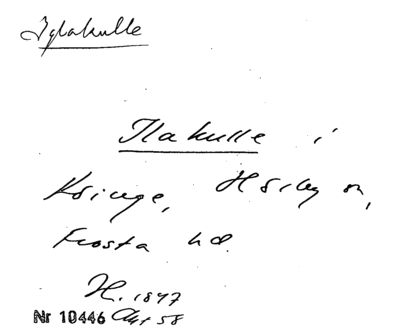 Iglakulle
Ilakulle i
Köinge, Hörby sn,
Frosta hd.
H. 1847
Nr 10446 Akt 58